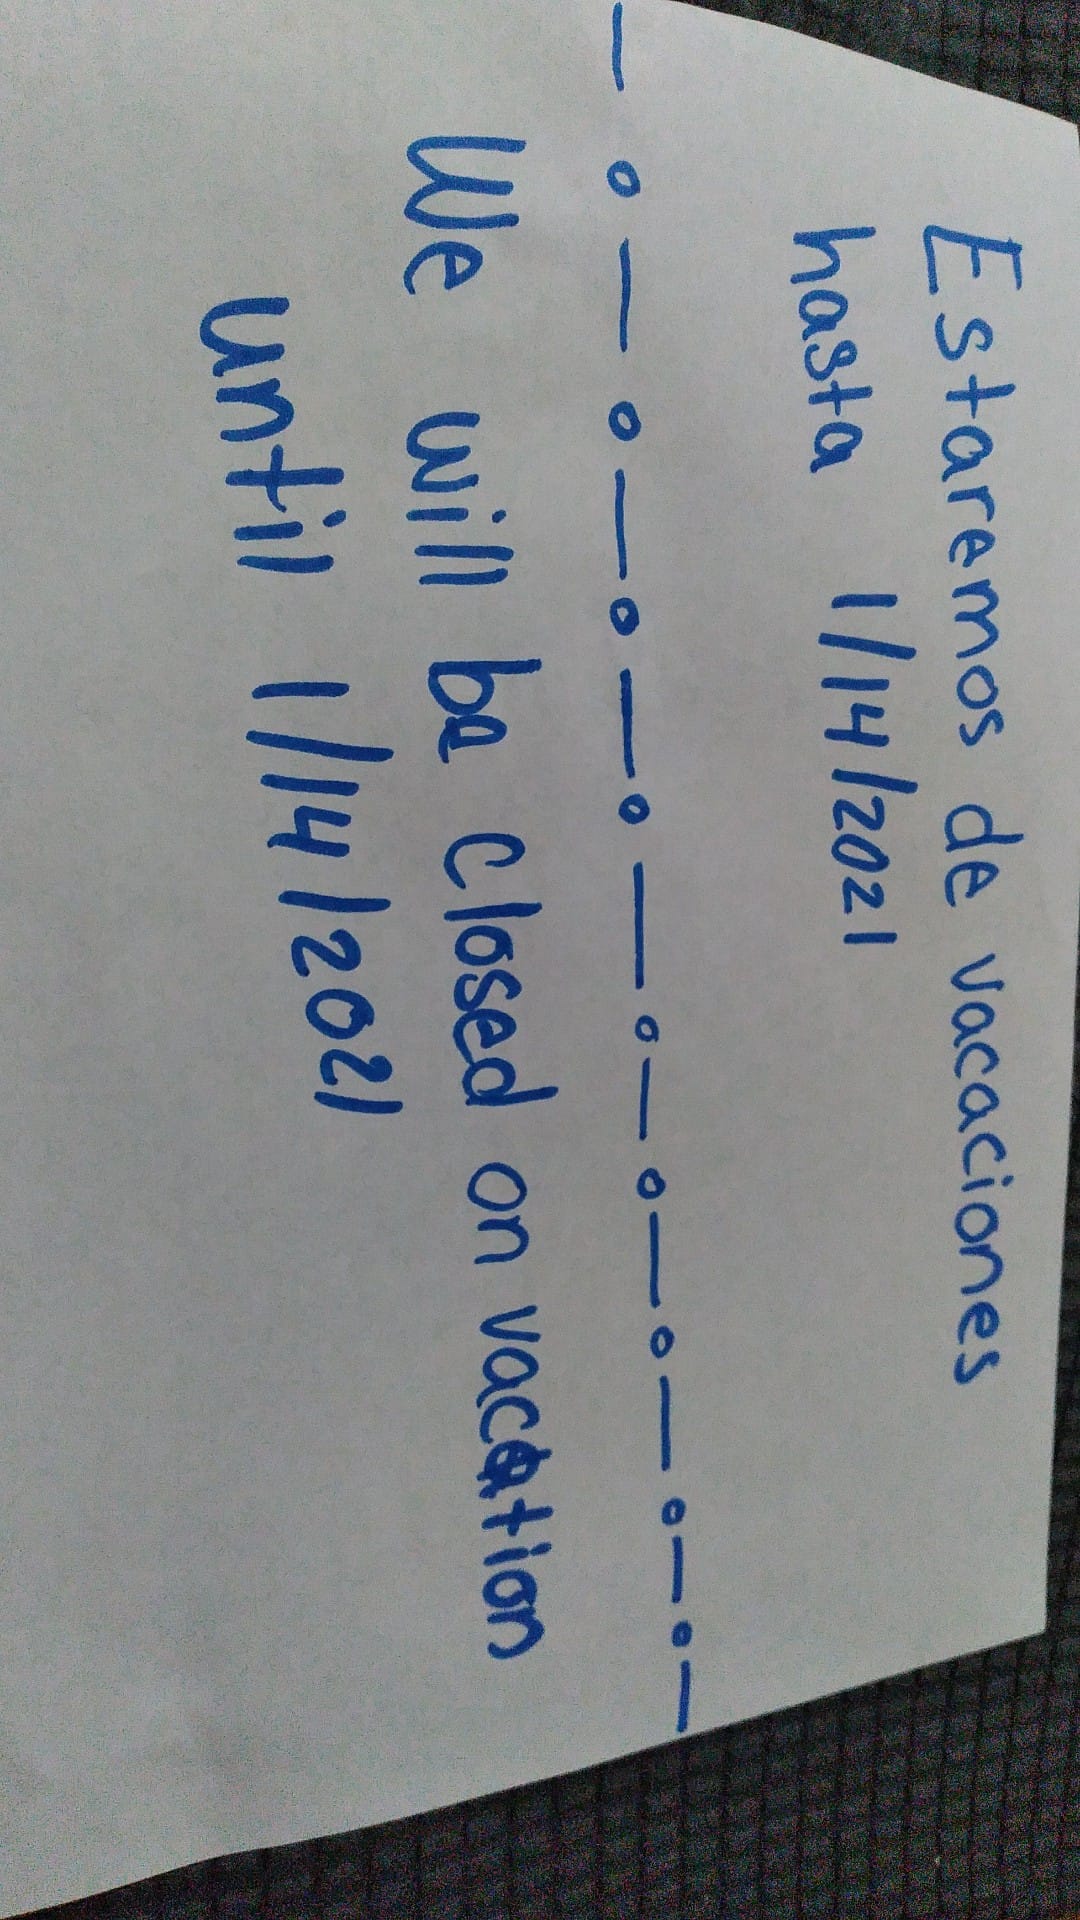 Estaremos de vacaciones
hasta 1/14/2021
We will be closed on vacation
until 1/14/2021